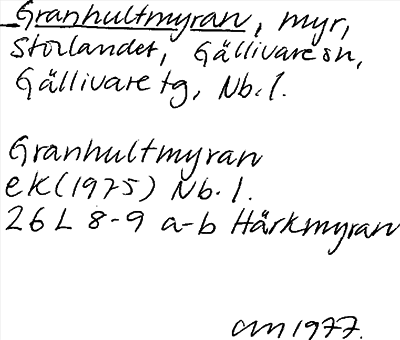 Granhultmyran, myr,
Storlandet, Gällivare sn,
Gällivare tg, Nb. l.
Granhultmyran
ek (1975) Nb. l.
26 L 8-9 a-b Härkmyran
am 1977.